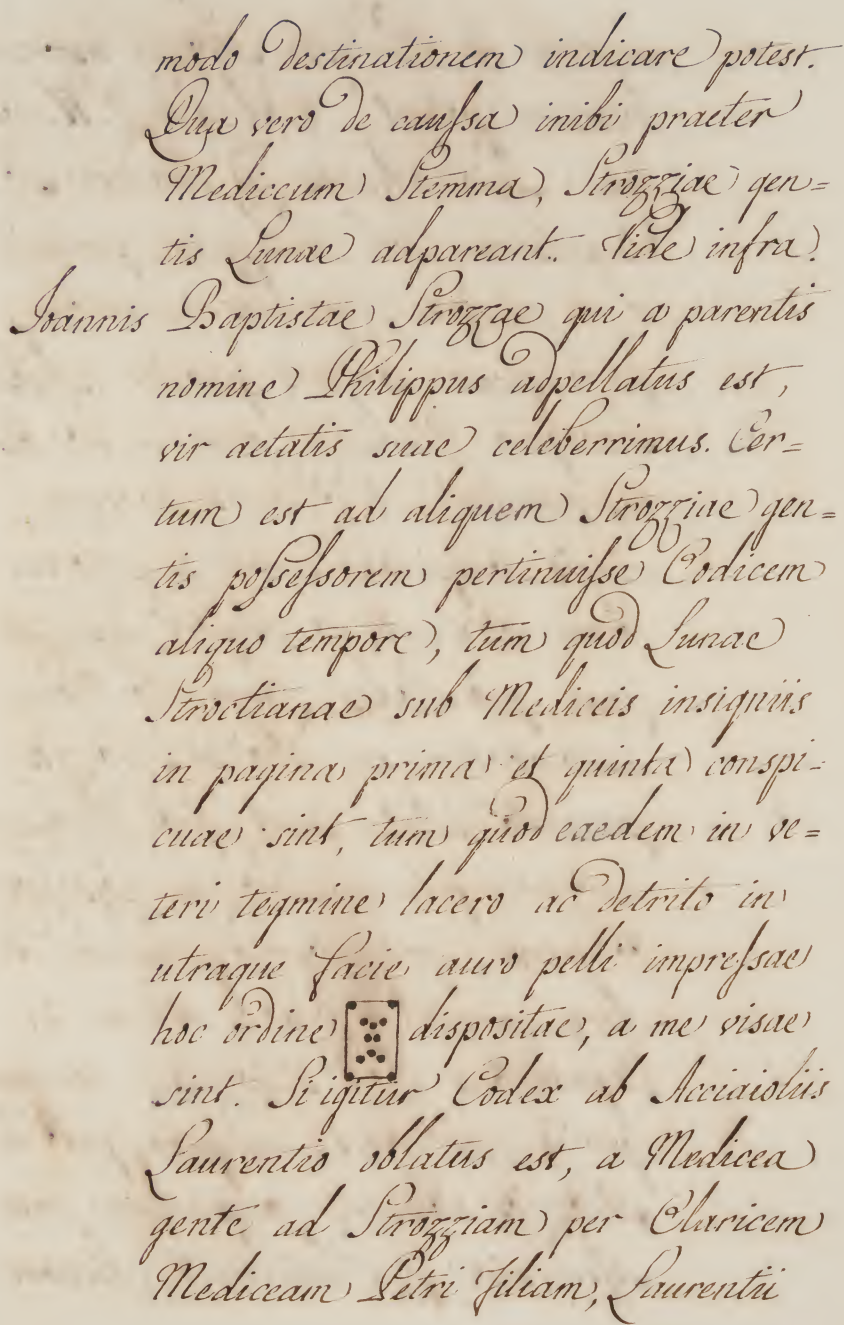 modo destinationem indicare potest.
Qua vero de caussa inibi praeter
Mediceum Stemma, Strozziae gen=
tis Lunae adpareant. Vide infra.
Joannis Baptistae Strozzae qui a parentis
nomine Philippus adpellatus est,
vir aetatis suae celeberrimus. Cer=
tum est ad aliquem Strozziae gen=
tis possessorem pertinuisse Codicem
aliquo tempore, tum quod Lunae
Stroctianae sub Mediceis insigniis
in pagina prima et quinta conspi=
cuae sint, tum quod eaedem in ve=
teri tegmine lacero ac detrito in
utraque facie auro pelli impressae
hoc ordine dispositae, a me visae
sint. Si igitur Codex ab Acciaioliis
Laurentio oblatus est, a Medicea
gente ad Strozziam per Claricem
Mediceam Petri filiam, Laurentii